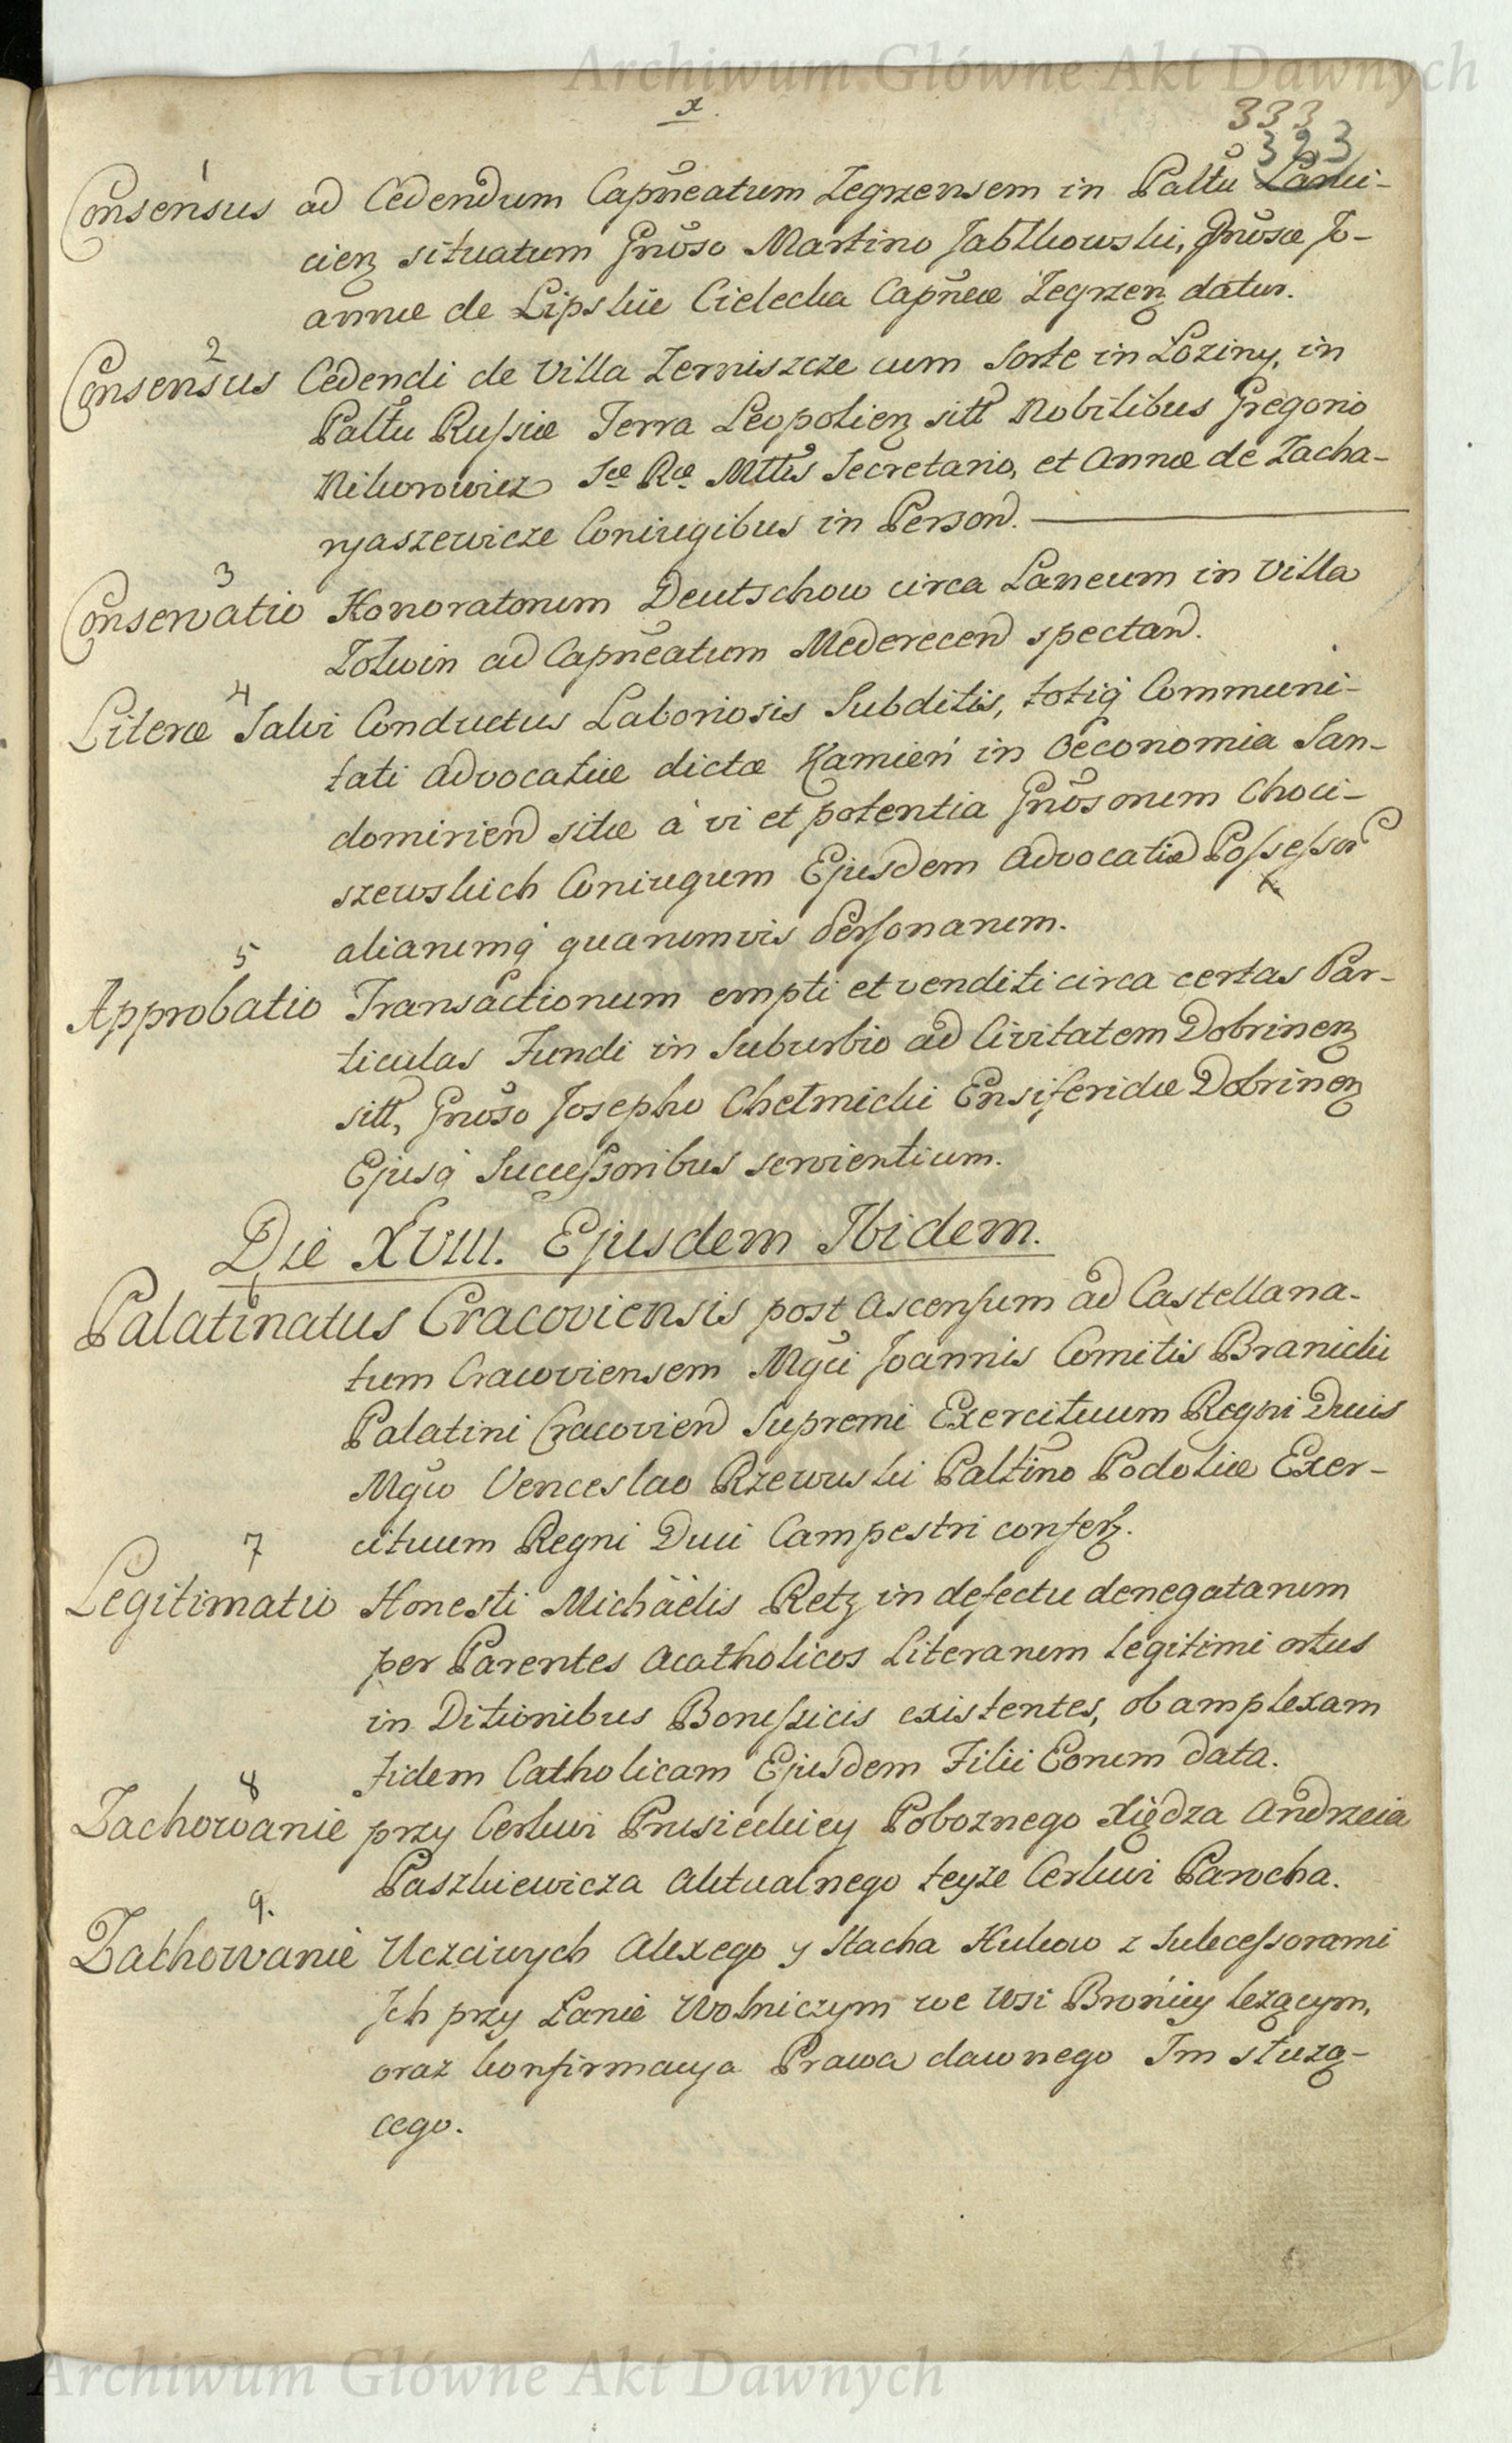 Archiwum Główne Akt Dawnych
x.
333
323
1
Consensus ad Cedendum Capńeatum Zegrzensem in Palttũ Lanci-
cieñ situatum Gnoso Martino Jabłkowski, Gnosæ Jo-
annæ de Lipskie Cielecka Capneæ Zegrzeñ datur.
2
Consensus Cedendi de Villa Zerniszcze cum Sorte in Loziny, in
Palttu Russiæ Terra Leopolieñ sitt Nobilibus Gregorio
Nikorowicz Sæ Ræ Mttis Secretario, et Annæ de Zacha-
ryaszewicze Coniugibus in Person.
3
Conservatio Honoratorum Deutschow circa Laneum in Villa
Zolwin ad Capńeatum Mederecen spectan.
4
Literæ Salvi Conductus Laboriosis Subditis, totiq Communi-
tati Advocatiæ dictæ Kamień in Oeconomia San-
domirien sitæ à vi et potentia Gnosorum Choci-
szewskich Coniugum Ejusdem Advocatiæ Possessor
aliarumq quarumvis Personarum.
5
Approbatio Transactionum empti et venditi circa certas Par-
ticulas Fundi in Suburbio ad Civitatem Dobrineñ
sitt, Gnoso Josepho Chełmicki Ensiferidæ Dobrineñ
Ejusq Successoribus servientium.
Die XVIII. Ejusdem Ibidem.
6
Palatinatus Cracoviensis post Ascensum ad Castellana-
tum Cracoviensem Mgci Joannis Comitis Branicki
Palatini Cracovien Supremi Exercituum Regni Ducis
Mgco Venceslao Rzewuski Palttino Podoliæ Exer-
cituum Regni Duci Campestri confer.
7
Legitimatio Honesti Michäelis Retz in defectu denegatarum
per Parentes Acatholicos Literarum legitimi ortus
in Ditionibus Borussicis existentes, ob amplexam
Fidem Catholicam Ejusdem Filii Eorum data.
8
Zachowanie przy Cerkwi Prusieckiey Poboznego Xiędza Andrzeia
Paszkiewicza Aktualnego teyze Cerkwi Parocha.
9.
Zachowanie Uczciwych Alexego y Stacha Kukow z Sukcessorami
Ich przy Łanie Wolniczym we Wsi Brońicy lezącym,
oraz konfirmacya Prawa dawnego Im słuzą-
cego.
Archiwum Główne Akt Dawnych